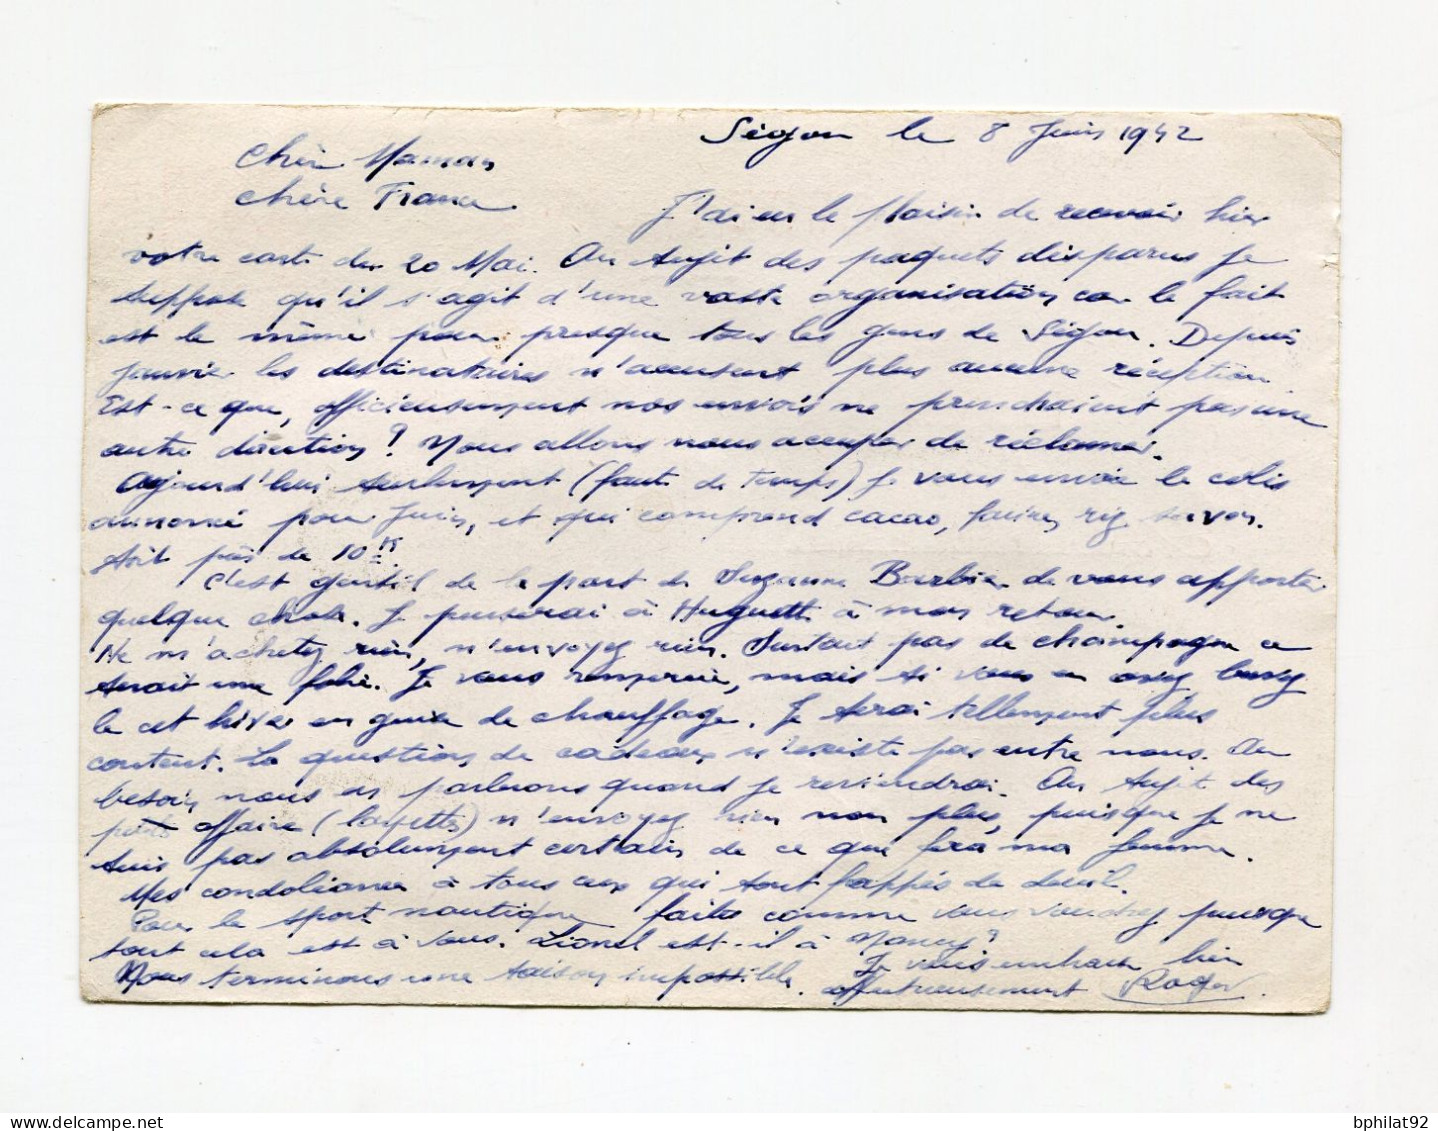 Ségou le 8 Juin 1942
Chère Maman
Chère France
J'ai eu le plaisir de recevoir hier
votre carte du 20 Mai. Au sujet des paquets disparus je
suppose qu'il s'agit d'une vaste organisation car le fait
est le même pour presque tous les gens de Ségou. Depuis
janvier les destinataires n'accusent plus aucune réception.
Est-ce que, officieusement nos envois ne prendraient pas une
autre direction? Nous allons nous occuper de réclamer.
Aujourd'hui seulement (faute de temps) je vous envoie le colis
annoncé pour Juin, et qui comprend cacao, farine, riz savon.
soit près de 10 K
C'est gentil de la part de Suzanne Barbier de vous apporter
quelque chose. Je penserai à Huguette à mon retour.
Ne m'achetez rien, n'envoyez rien. Surtout pas de champagne ce
serait une folie. Je vous remercie, mais si vous en avez buvez
le cet hiver en guise de chauffage. Je serai tellement plus
content. La question de cadeaux n'existe pas entre nous. Au
besoin nous en parlerons quand je reviendrai. Au sujet des
petites affaires (layette) n'envoyez rien non plus, puisque je ne
suis pas absolument certain de ce que fera ma femme.
Mes condoléances à tous ceux qui sont frappés de deuil.
Pour le sport nautique faites comme vous voudrez puisque
tout cela est à vous. Lionel est-il à Nancy?
Nous terminons une saison impossible. Je vous embrasse bien
affectueusement Roger.
bphilat92